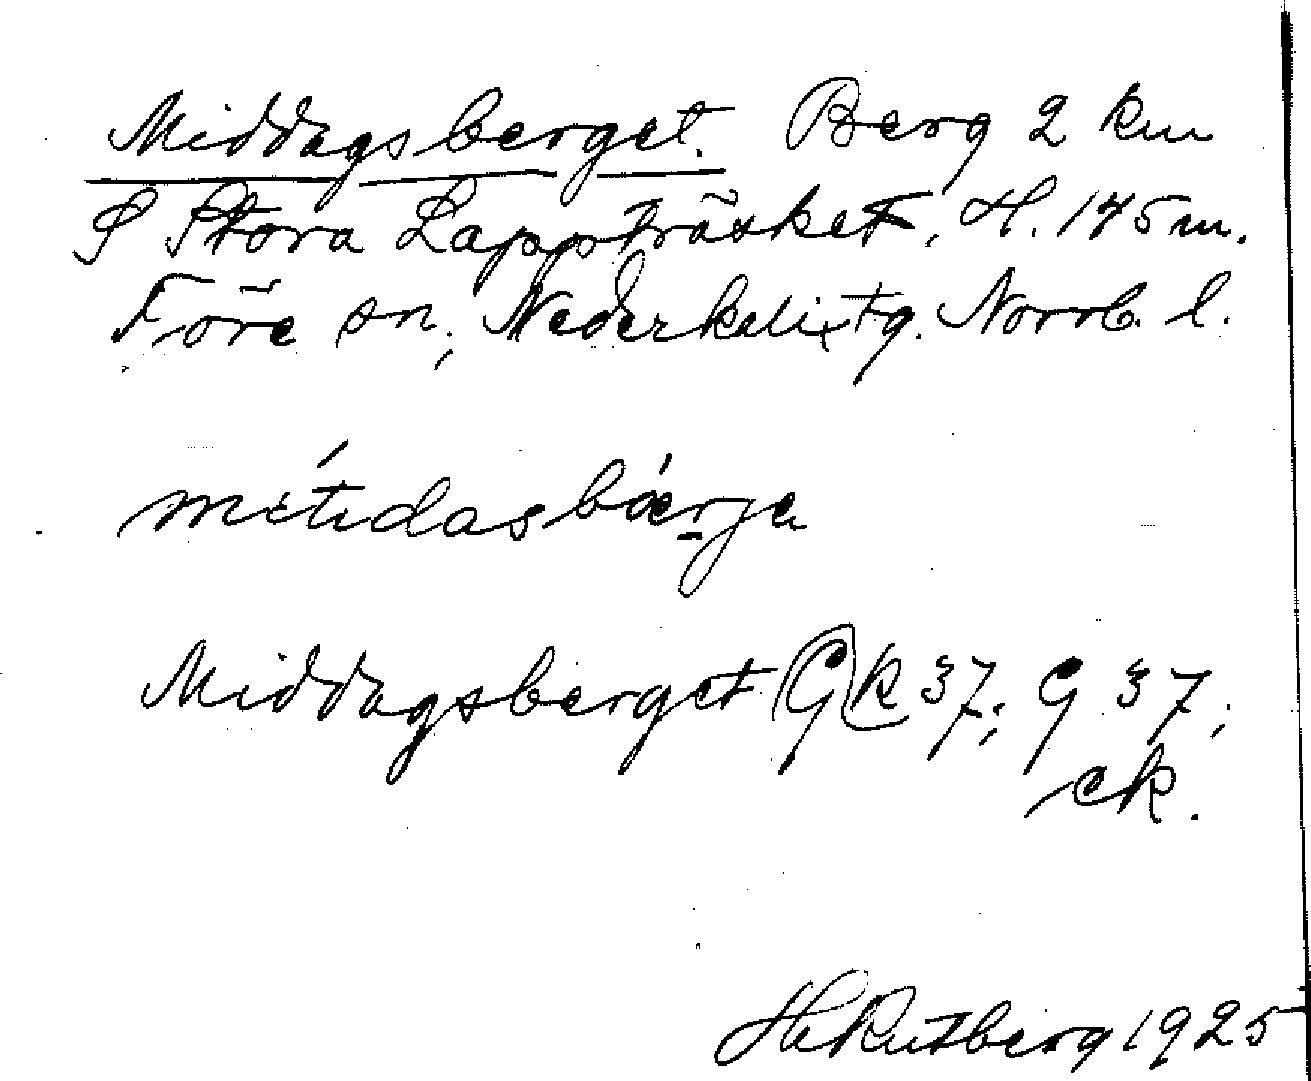 Middagsberget. Berg 2 km
S Stora Lappträsket, H. 175 m.
Töre sn, Nederkalix tg. Norrb. l.
métidasbǽrje
Middagsberget Gk 37; G 37;
ek.
H Rutberg 1925